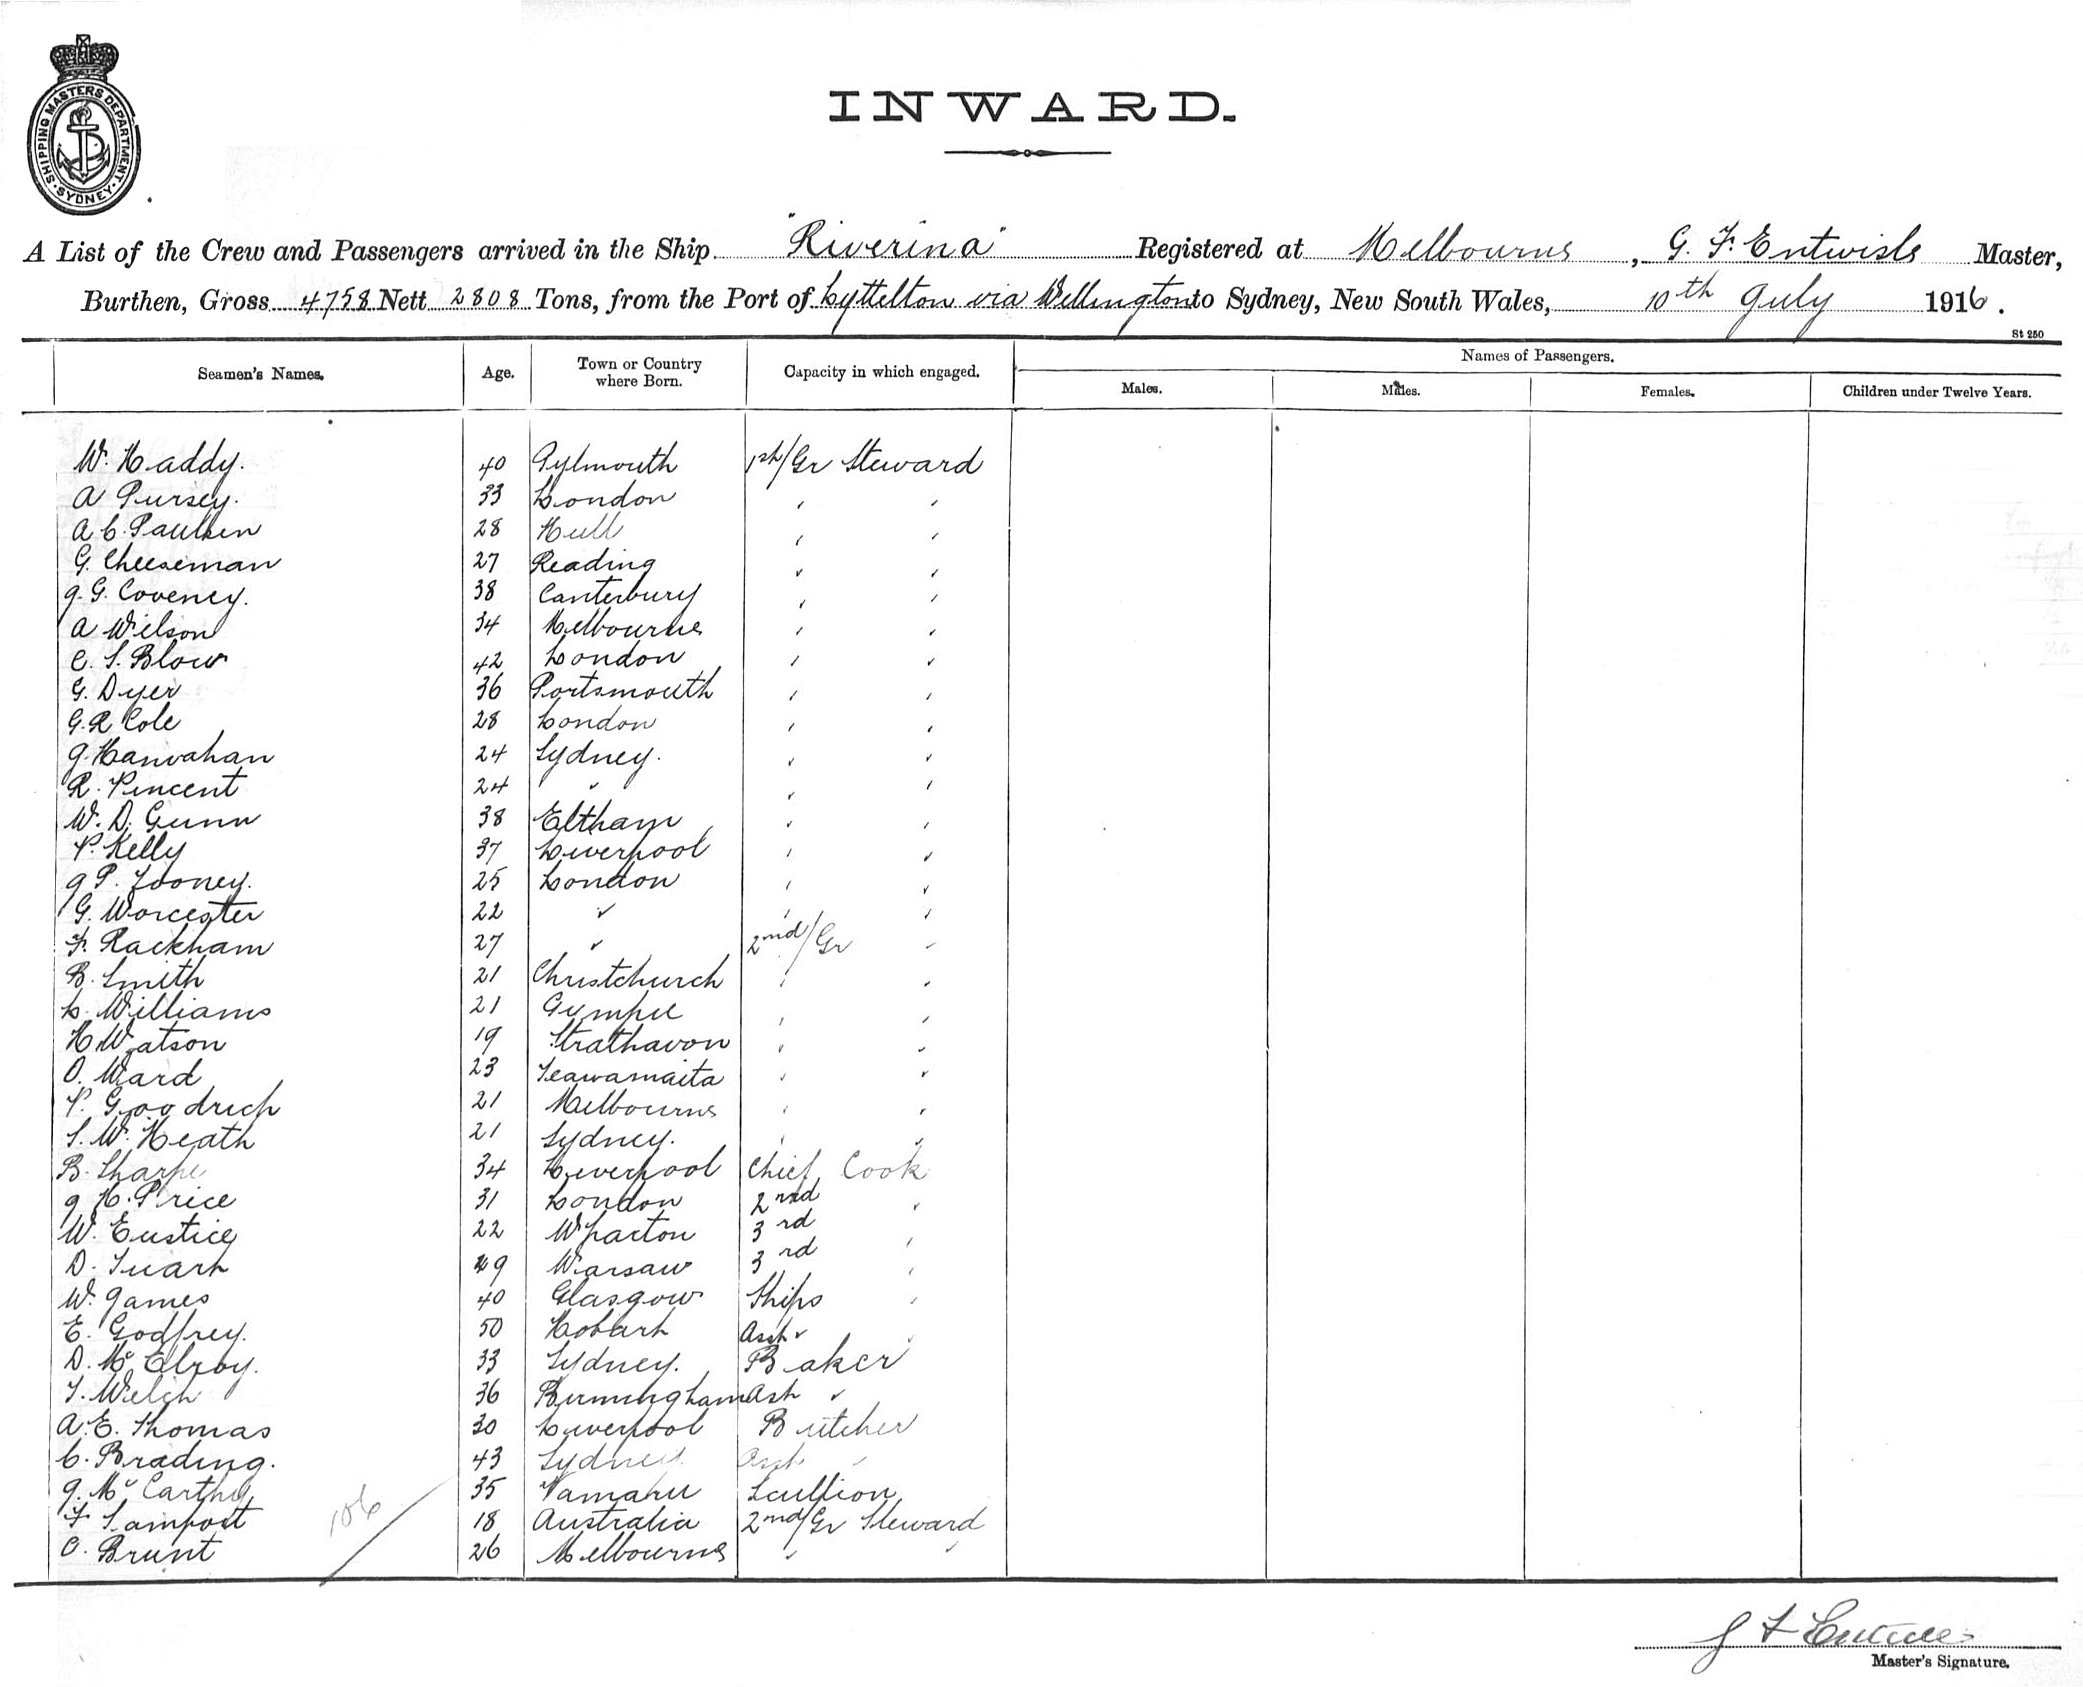 SHIPPING MASTERS DEPARTMENT. SYDNEY
INWARD.
A List of the Crew and Passengers arrived in the Ship "Riverina" Registered at Melbourne, G. F. Entwisle Master,
Burthen, Gross 4758 Nett 2808 Tons, from the Port of Lyttelton via Wellington to Sydney, New South Wales, 10th July 1916.
St 250
Seamen's Names. Age. Town or Country where Born. Capacity in which engaged. Names of Passengers.
Males. Males. Females. Children under Twelve Years.
W. Haddy. 40 Pylmouth 1st/Gr Steward
A Pursey. 33 London " "
A C. Paulsen 28 Hull " "
G. Cheeseman 27 Reading " "
J. G. Coveney. 38 Canterbury " "
A Wilson 34 Melbourne " "
C. S. Blow 42 London " "
G. Dyer 36 Portsmouth " "
G. R Cole 28 London " "
J. Hanrahan 24 Sydney. " "
R. Pincent 24 " " "
W. D. Gunn 38 Eltham " "
P. Kelly 37 Liverpool " "
J P. Tooney. 25 London " "
G. Worcester 22 " " "
F. Rackham 27 " 2nd/Gr "
B. Smith 21 Christchurch " "
L. Williams 21 Gympie " "
H. Watson 19 Strathavon " "
O. Ward 23 " "
P. Goodrich 21 Melbourne " "
S. W. Heath 21 Sydney. " "
B. Sharpe 34 Liverpool Chief Cook
J H. Price 31 London 2nd "
W. Eustice 22 Wharton 3rd "
D. 49 Warsaw 3rd "
W. James 40 Glasgow Ships "
E. Godfrey. 50 Hobart Asst "
D. McElroy. 33 Sydney. Baker
T. Welch 36 Birmingham Asst "
A. E. Thomas 30 Liverpool Butcher
C. Brading. 43 Sydney Asst "
J. McCarthy 35 Scullion
F. 18 Australia 2nd/Gr Steward
C. Brunt 26 Melbourne " "
106
G F Entwisle
Master's Signature.